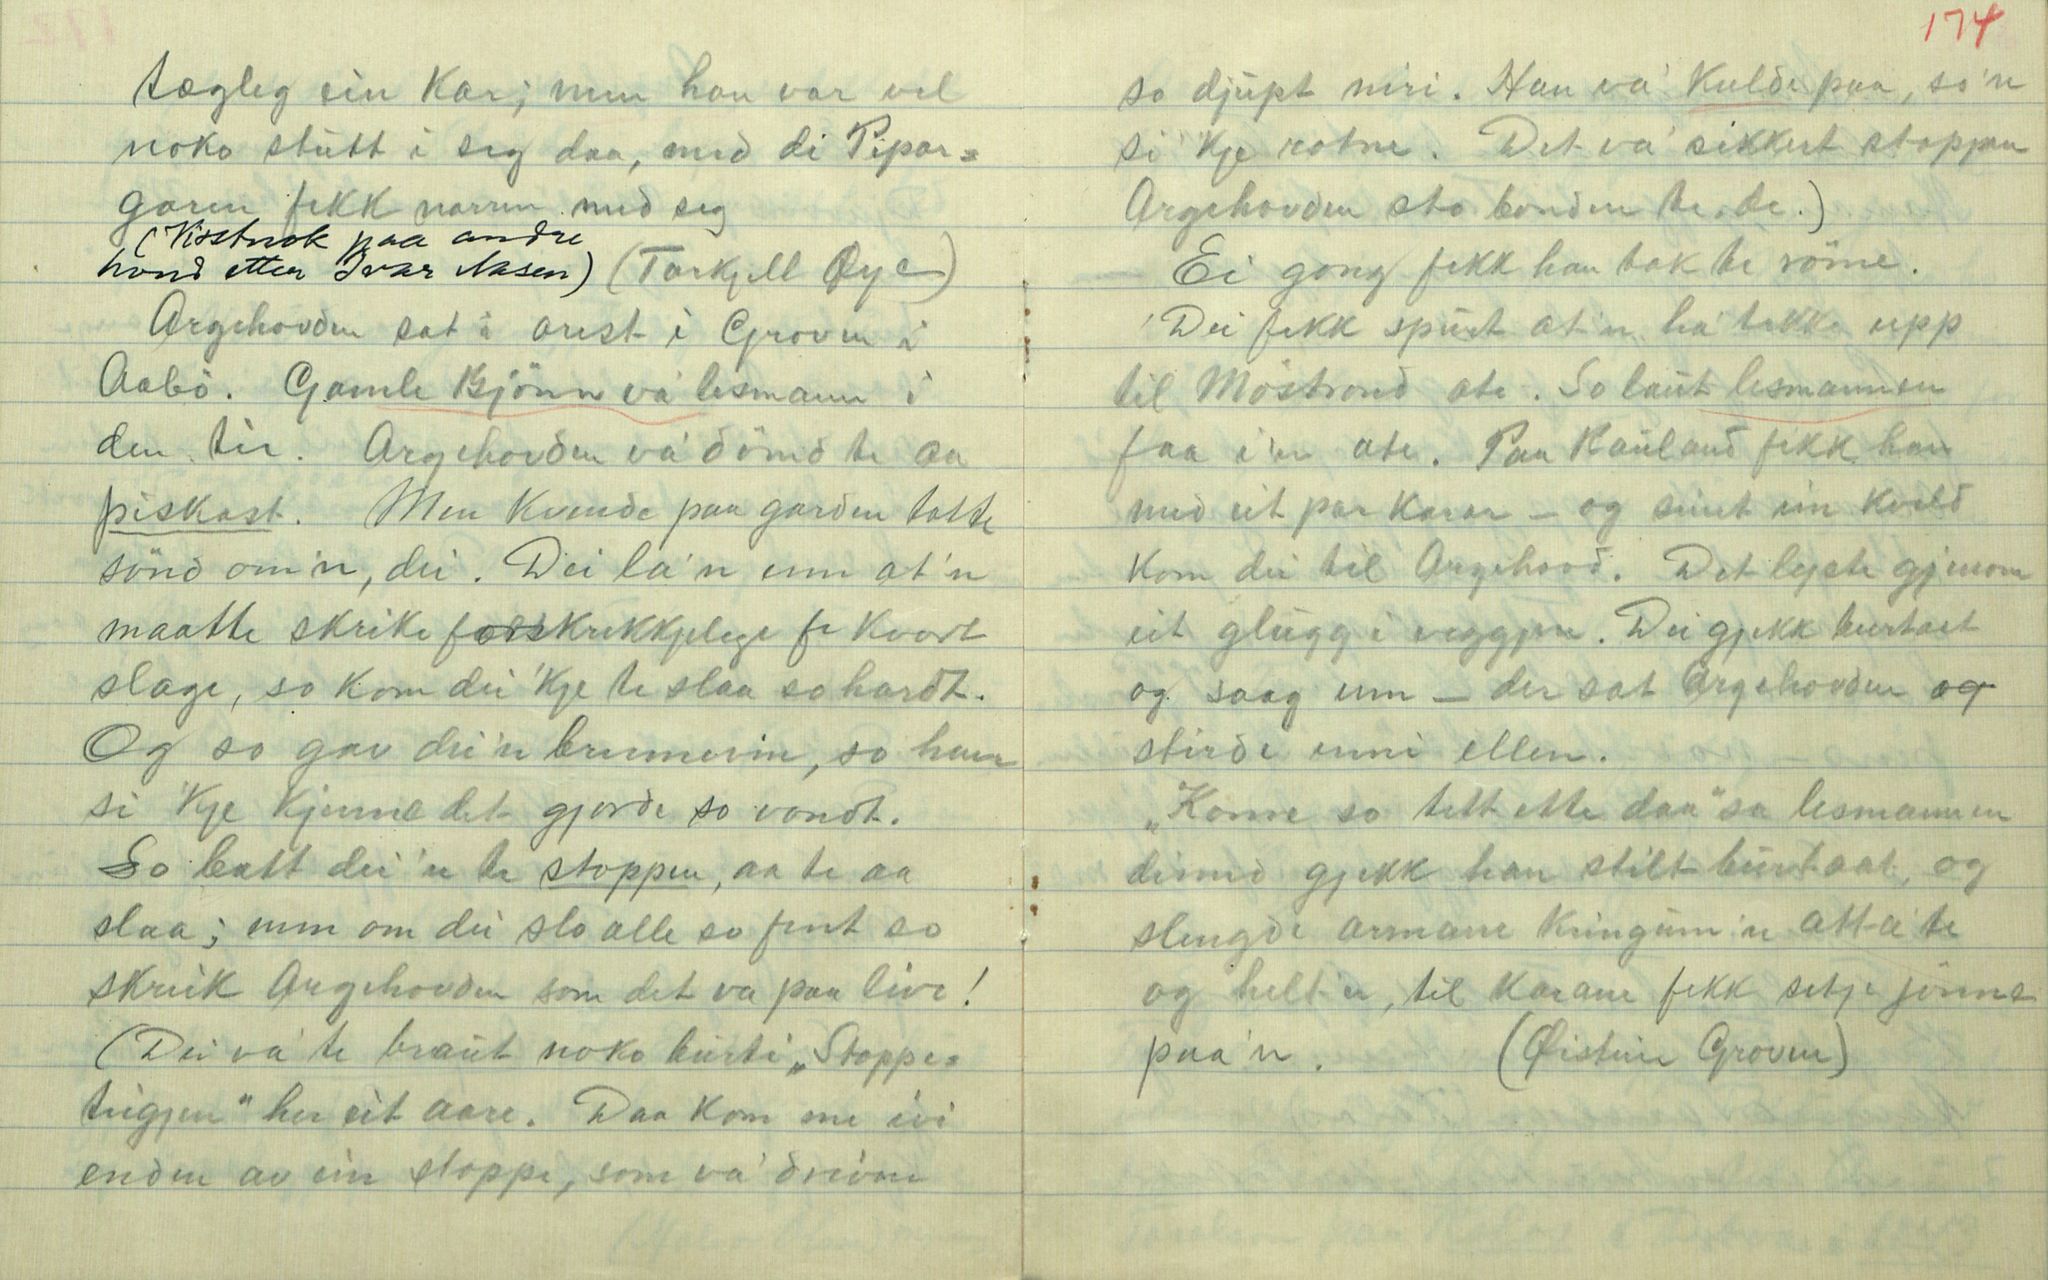 tægleg ein kar; men han var vel
noko stutt i seg daa, med di Pipar=
garen fekk narren med seg
(Visstnok paa andre
hond etter Ivar Aasen) (Torkjell Øye)
Argehovden sat i arest i Groven i
Aabö. Gamle Björn va' lesmann i
den tir. Argehovden va' dömd te aa
piskast. Men kvende paa garden totte
sönd om'n, dei. Dei la'n unn at'n
maatte skrike forskrekkjelege fe kvort
slage, so kom dei 'kje te slaa so hardt.
Og so gav dei'n brennevin, so han
si 'kje kjenne det gjorde so vondt.
So batt dei 'n te stoppen, aa te aa
slaa; men om dei slo alle so fint so
skreik Argehovden som det va paa live!
(Dei va' te braut noko burti „Stoppe=
teigjen" her eit aare. Daa kom me ivi
enden av ein stoppe, som va' drivan
174
so djupt niri. Han va' kulde paa, so'n
si 'kje rotne. Det va' sikkert stoppen
Argehovden sto bonden te, te.)
Ei gong fekk han tak te röme.
Dei fekk spurt at'n ha' tekke upp
til Möstrond ate. So laut lesmannen
faa i'n ate. Paa Rauland fekk han
med eit par karar – og seint ein kveld
kom dei til Argehovd. Det lyste gjenom
eit glugg i veggjen. Dei gjekk burtaat
og saag inn – der sat Argehovden og
stirde inni ellen.
„Kome so tett ette daa" sa lesmannen
dermed gjekk han stilt burtaat, og
slengde armane kringum'n atta'te
og helt'n, til karane fekk setje jönne
paa'n. (Øistein Groven)